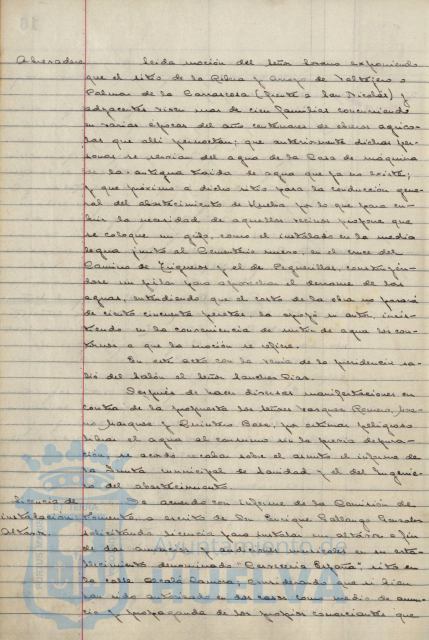 Abrevadero leida moción del Señor Lozano exponiendo
que el sitio de la Ribua y Arroyo de Valtejero o
Palmar de la Carrascosa (frente a San Nicolás) y
adyacentes viven mas de cien familias concurriendo
en varias épocas del año centenares de obreros agrico-
las que alli pernoctan; que anteriormente dichas per-
sonas se servian del agua de la Casa de máquina
de la antigua traida de agua que ya no existe;
y que próximo a dicho sitio pasa la conducción gene-
ral del abastecimiento de Huelva por lo que para cu-
brir la necesidad de aquellos vecinos propone que
se coloque un grifo, como el instalado en la media
legua junto al Cementerio nuevo, en el cruce del
Camino de Trigueros y el de Peguerillas, construyén-
dose un pilar para aprovechar el derrame de las
aguas, entendiendo que el costo de la obra no pasará
de ciento cincuenta pesetas, la apoyó su autor, insis-
tiendo en la conveniencia de surtir de agua los con-
tornos a que la moción se refiere.
En este acto con la venia de la presidencia sa-
lió del Salón el Señor Sanchez Dias.
Después de hacer diversas manifestaciones en
contra de la propuesta los Señores Vazquez Romero,
Marquez y Quintero Baez, por estimar peligroso
librar el agua al consumo sin la previa depura-
ción, se acordó recabar sobre el asunto el informe de
la Junta municipal de Sanidad y el del Ingenie-
ro del abastecimiento.
Licencia de De acuerdo con informe de la Comisión de
instalación Fomento, a escrito de Don Enrique Gonzalez
Altavoz. solicitando licencia para instalar un altavoz a fin
de dar anuncios y audiciones en su esta-
blecimiento denominado "Cerveceria España" sito en
la calle Alcalá Zamora, considerando que si bien
han sido autorizado en dos casos como medio de anun-
cio y propaganda de los propios comerciantes que
Ayuntamiento de
HUELVA